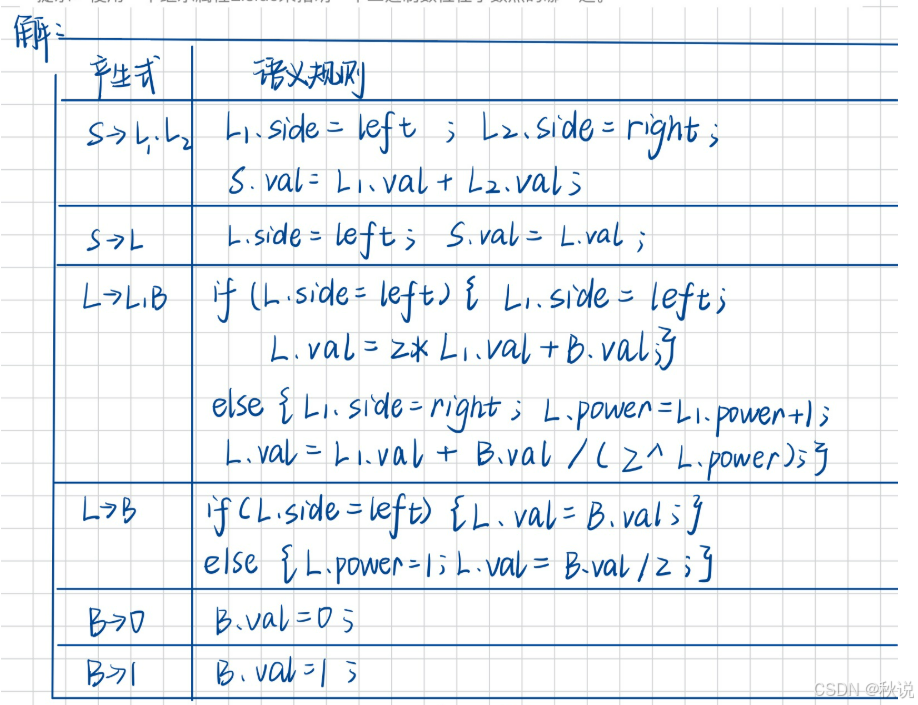 提示：使用一个继承属性L.side来指明一个二进制数位在小数点的哪一边。
解：
产生式 语义规则
S→L₁.L₂ L₁.side = left ; L₂.side = right ;
S.val = L₁.val + L₂.val ;
S→L L.side = left ; S.val = L.val ;
L→L₁B if (L.side = left) { L₁.side = left ;
L.val = 2* L₁.val + B.val ;}
else { L₁.side = right ; L.power = L₁.power+1 ;
L.val = L₁.val + B.val / ( 2^ L.power) ;}
L→B if (L.side = left) { L.val = B.val ;}
else { L.power=1 ; L.val = B.val /2 ;}
B→0 B.val=0 ;
B→1 B.val=1 ;
CSDN @秋说